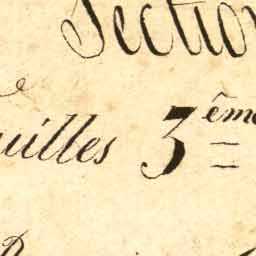 Section
uilles 3ème